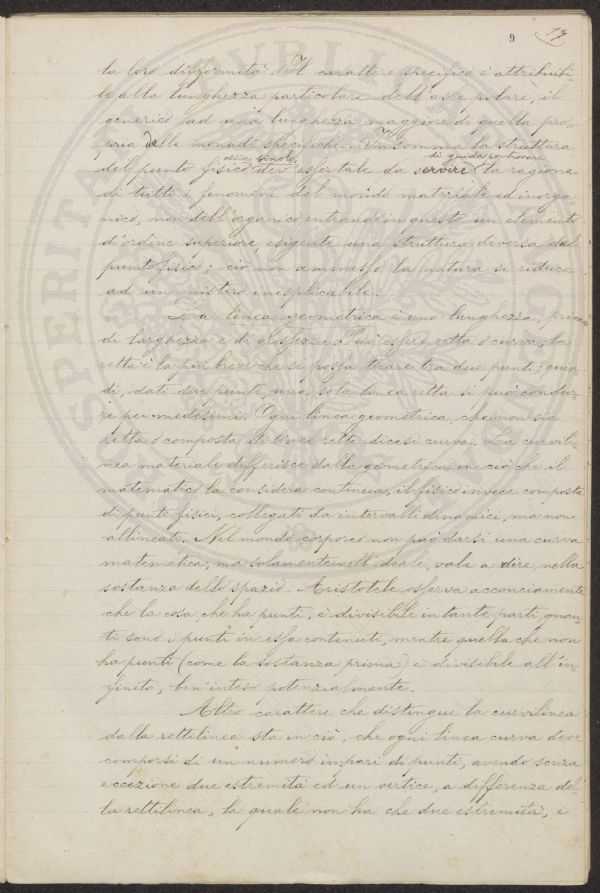 9 17
la loro difformità. Il carattere specifico è attribuibi
le alla lunghezza particolare dell'asse polare, il
generico ad una lunghezza maggiore di quella pro-
pria delle monadi specifiche. In somma la struttura
ossia sinolo, di guida
del punto fisico dev'esser tale da servire la ragione
di tutti i fenomeni del mondo materiale ed inorga-
nico, non dell'organico entrando in questo un elemento
d'ordine superiore, esigente una struttura diversa dal
punto fisico; ciò non ammesso, la natura si riduce
ad un mistero inesplicabile.
La linea geometrica è una lunghezza, priva
di larghezza e di grossezza. Può essere retta o curva, la
retta è la più breve che si possa tirare tra due punti; quin-
di, dati due punti, una sola linea retta si può condur-
re pei medesimi. Ogni linea geometrica, che non sia
retta o composta di linee rette dicesi curva. La curvili-
nea materiale differisce dalla geometrica in ciò che il
matematico la considera continua, il fisico invece composta
di punti fisici, collegati da intervalli dinamici, ma non
allineati. Nel mondo corporeo non può darsi una curva
matematica, ma solamente nell'ideale, vale a dire, nella
sostanza dello spazio. Aristotele osserva acconciamente
che la cosa, che ha punti, è divisibile in tante parti, quan-
ti sono i punti in essa contenuti, mentre quella che non
ha punti (come la sostanza prima) è divisibile all'in-
finito, ben inteso potenzialmente.
Altro carattere che distingue la curvilinea
dalla rettilinea sta in ciò, che ogni linea curva deve
comporsi di un numero impari di punti, avendo senza
eccezione due estremità ed un vertice, a differenza del
la rettilinea, la quale non ha che due estremità, e